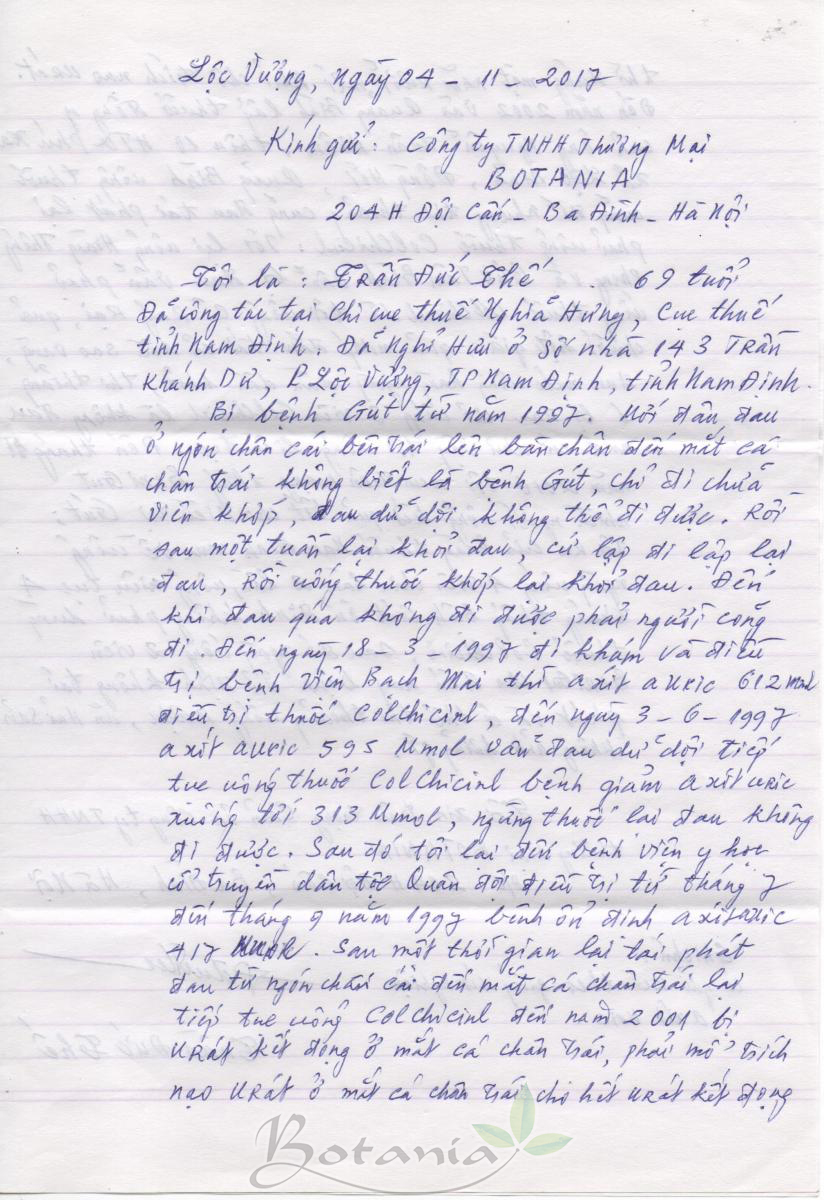 Lộc Vượng, ngày 04 - 11 - 2017
Kính gửi: Công ty TNHH Thương Mại
BOTANIA
204H Đội Cấn - Ba Đình - Hà Nội
Tôi là: Trần Đức Thế . 69 tuổi
Đã công tác tại Chi cục thuế Nghĩa Hưng, Cục thuế
tỉnh Nam Định. Đã Nghỉ Hưu ở Số nhà 143 Trần
Khánh Dư, P Lộc Vượng, TP Nam Định, tỉnh Nam Định.
Bị bệnh Gút từ năm 1997. Mới đầu đau
ở ngón chân cái bên trái lên bàn chân đến mắt cá
chân trái không biết là bệnh Gút, chỉ đi chữa
viên khớp, đau dữ dội không thể đi được. Rồi
sau một tuần lại khỏi đau, cứ lập đi lập lại
đau, rồi uống thuốc khớp lại khỏi đau. Đến
khi đau quá không đi được phải người cõng
đi. Đến ngày 18 - 3 - 1997 đi khám và điều
trị bệnh viện Bạch Mai thì axit auric 612 mmol
điều trị thuốc Colchicinl, đến ngày 3 - 6 - 1997
axít auric 595 Mmol vẫn đau dữ dội tiếp
tục uống thuốc Colchicinl bệnh giảm axít uric
xuống tới 313 Mmol, ngừng thuốc lại đau không
đi được. Sau đó tôi lại đến bệnh viện y học
cổ truyền dân tộc Quân đội điều trị từ tháng 7
đến tháng 9 năm 1997 bệnh ổn định axít auric
417. Sau một thời gian lại tái phát
đau từ ngón chân cái đến mắt cá chân trái lại
tiếp tục uống Colchicinl đến năm 2001 bị
urát kết đọng ở mắt cá chân trái, phải mổ trích
nạo urát ở mắt cá chân trái cho hết urát kết đọng
Botania